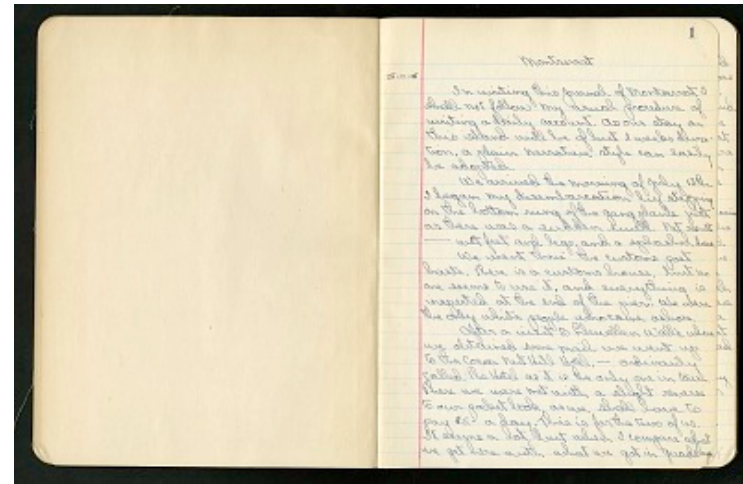 1
Montserrat
In writing this journal of Montserrat I
shall not follow my usual procedure of
writing a daily account. As our stay on
this island will be of but 2 weeks dura-
tion, a plain narrative style can easily
be adopted.
We arrived the morning of July 12th.
I began my disembarcation by stepping
on the bottom rung of the gang plank just
as there was a sudden lurch. Net result
— wet feet and legs, and a
We went thru the customs
There is a customs house, but no
one seems to use it, and everything is
inspected at the end of the pier. We were
the only white people who came ashore.
After a visit to Llewellyn Wall's where
we obtained some mail we went up
to the Cocoa Nut Hill Hotel, — ordinarily
called the Hotel as it is the only one in
There we were met with a slight reverse
to our pocket book, as we shall have to
pay a day. This is for the two of us.
It seems a lot but when I compare what
we get here with what we got in